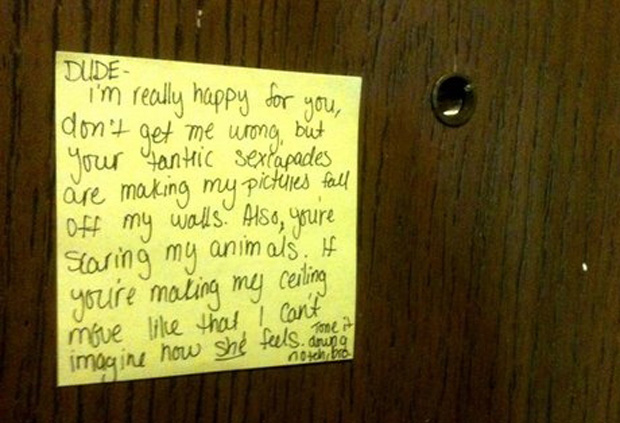 DUDE-
i'm really happy for you,
don't get me wrong, but
your tantric sexcapades
are making my pictures fall
off my walls. Also, you're
scaring my animals. If
you're making my ceiling
move like that, I can't
imagine how she feels. Tone it
down a
notch, bro.